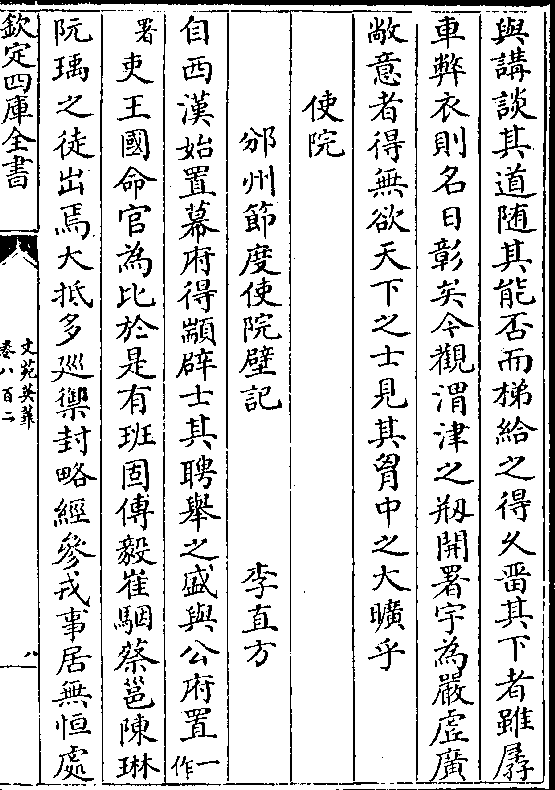 與講談其道随其能否而梯給之得久畱其下者雖孱
車弊衣則名日彰矣今觀渭津之剏開署宇為嚴虚廣
敞意者得無欲天下之士見其胷中之大曠乎
使院
邠州節度使院壁記 李直方
自西漢始置幕府得顓辟士其聘舉之盛與公府置一作
署吏王國命官為比於是有班固傅毅崔駰蔡邕陳琳
阮瑀之徒出焉大抵多廵禦封略經參戎事居無恒處
欽定四庫全書
文苑英華
卷八百二
八